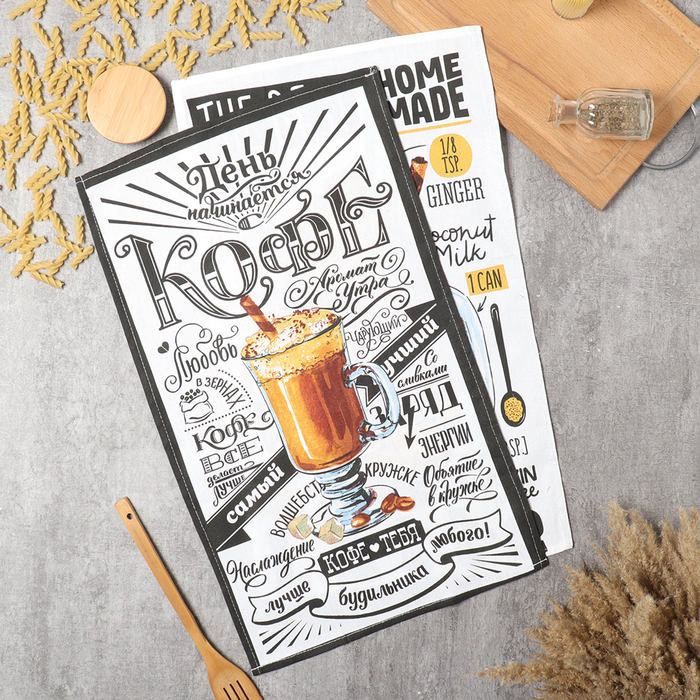 День
начинается
КОФЕ
Аромат
Утра
Любовь
в зёрнах
чарующий
самый лучший
Со
сливками
Кофе
ВСЕ
делает
лучше
ЗАРЯД
ЭНЕРГИИ
ВОЛШЕБСТВ
КРУЖКЕ
Объятие
в кружке
Наслаждение
КОФЕ ТЕБЯ
любого!
лучше
будильника
HOME
MADE
1/8
TSP.
GINGER
coconut
Milk
1 CAN
SP.]